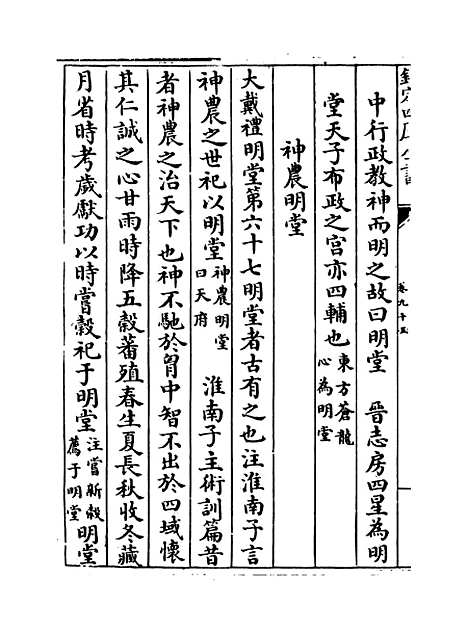 欽定四庫全書
卷九十五
中行政教神而明之故曰明堂　晉志房四星為明
堂天子布政之宮亦四輔也東方蒼龍心為明堂
神農明堂
大戴禮明堂第六十七明堂者古有之也注淮南子言
神農之世祀以明堂神農明堂曰天府　淮南子主術訓篇昔
者神農之治天下也神不馳於胷中智不出於四域懷
其仁誠之心甘雨時降五穀蕃殖春生夏長秋收冬藏
月省時考歲獻功以時嘗穀祀于明堂注嘗新穀薦于明堂明堂